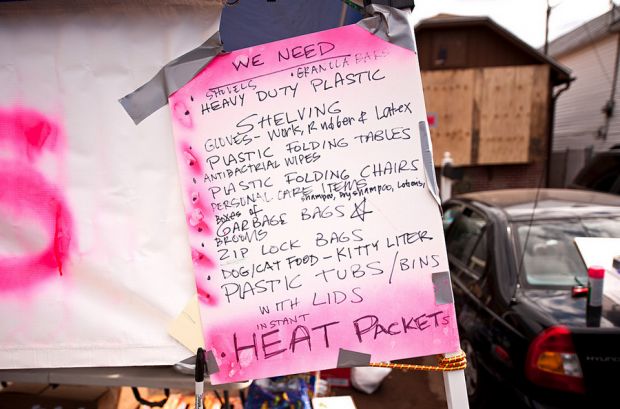 WE NEED
SHOVELS • GRANOLA BARS
HEAVY DUTY PLASTIC
SHELVING
GLOVES - WORK, RUBBER & LATEX
PLASTIC FOLDING TABLES
ANTIBACTERIAL WIPES
PLASTIC FOLDING CHAIRS
PERSONAL CARE ITEMS
shampoo, Dry shampoo, Lotions,
BOXES OF
GARBAGE BAGS
BROOMS
ZIP LOCK BAGS
DOG/CAT FOOD - KITTY LITER
PLASTIC TUBS/BINS
WITH LIDS
INSTANT
HEAT PACKETS
HYUNDAI